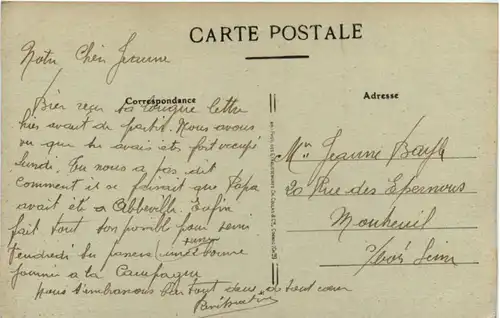 CARTE POSTALE
Notre Chère Jeanne
Correspondance
Adresse
Bien reçu ta longue lettre
hier avant de partir. Nous avons
vu que tu avais été fort occupé
Lundi. Tu nous a pas dit
comment il se faisait que Papa
avait été a Abbeville. Enfin
fait tout ton possible pour venir
Vendredi tu passeras une bonne
journée a la Campagne
nous t'embrassons bien tout deux de tout cœur
Jeanne Bayle
20 Rue des Epernous
Montreuil
s/bois Seine